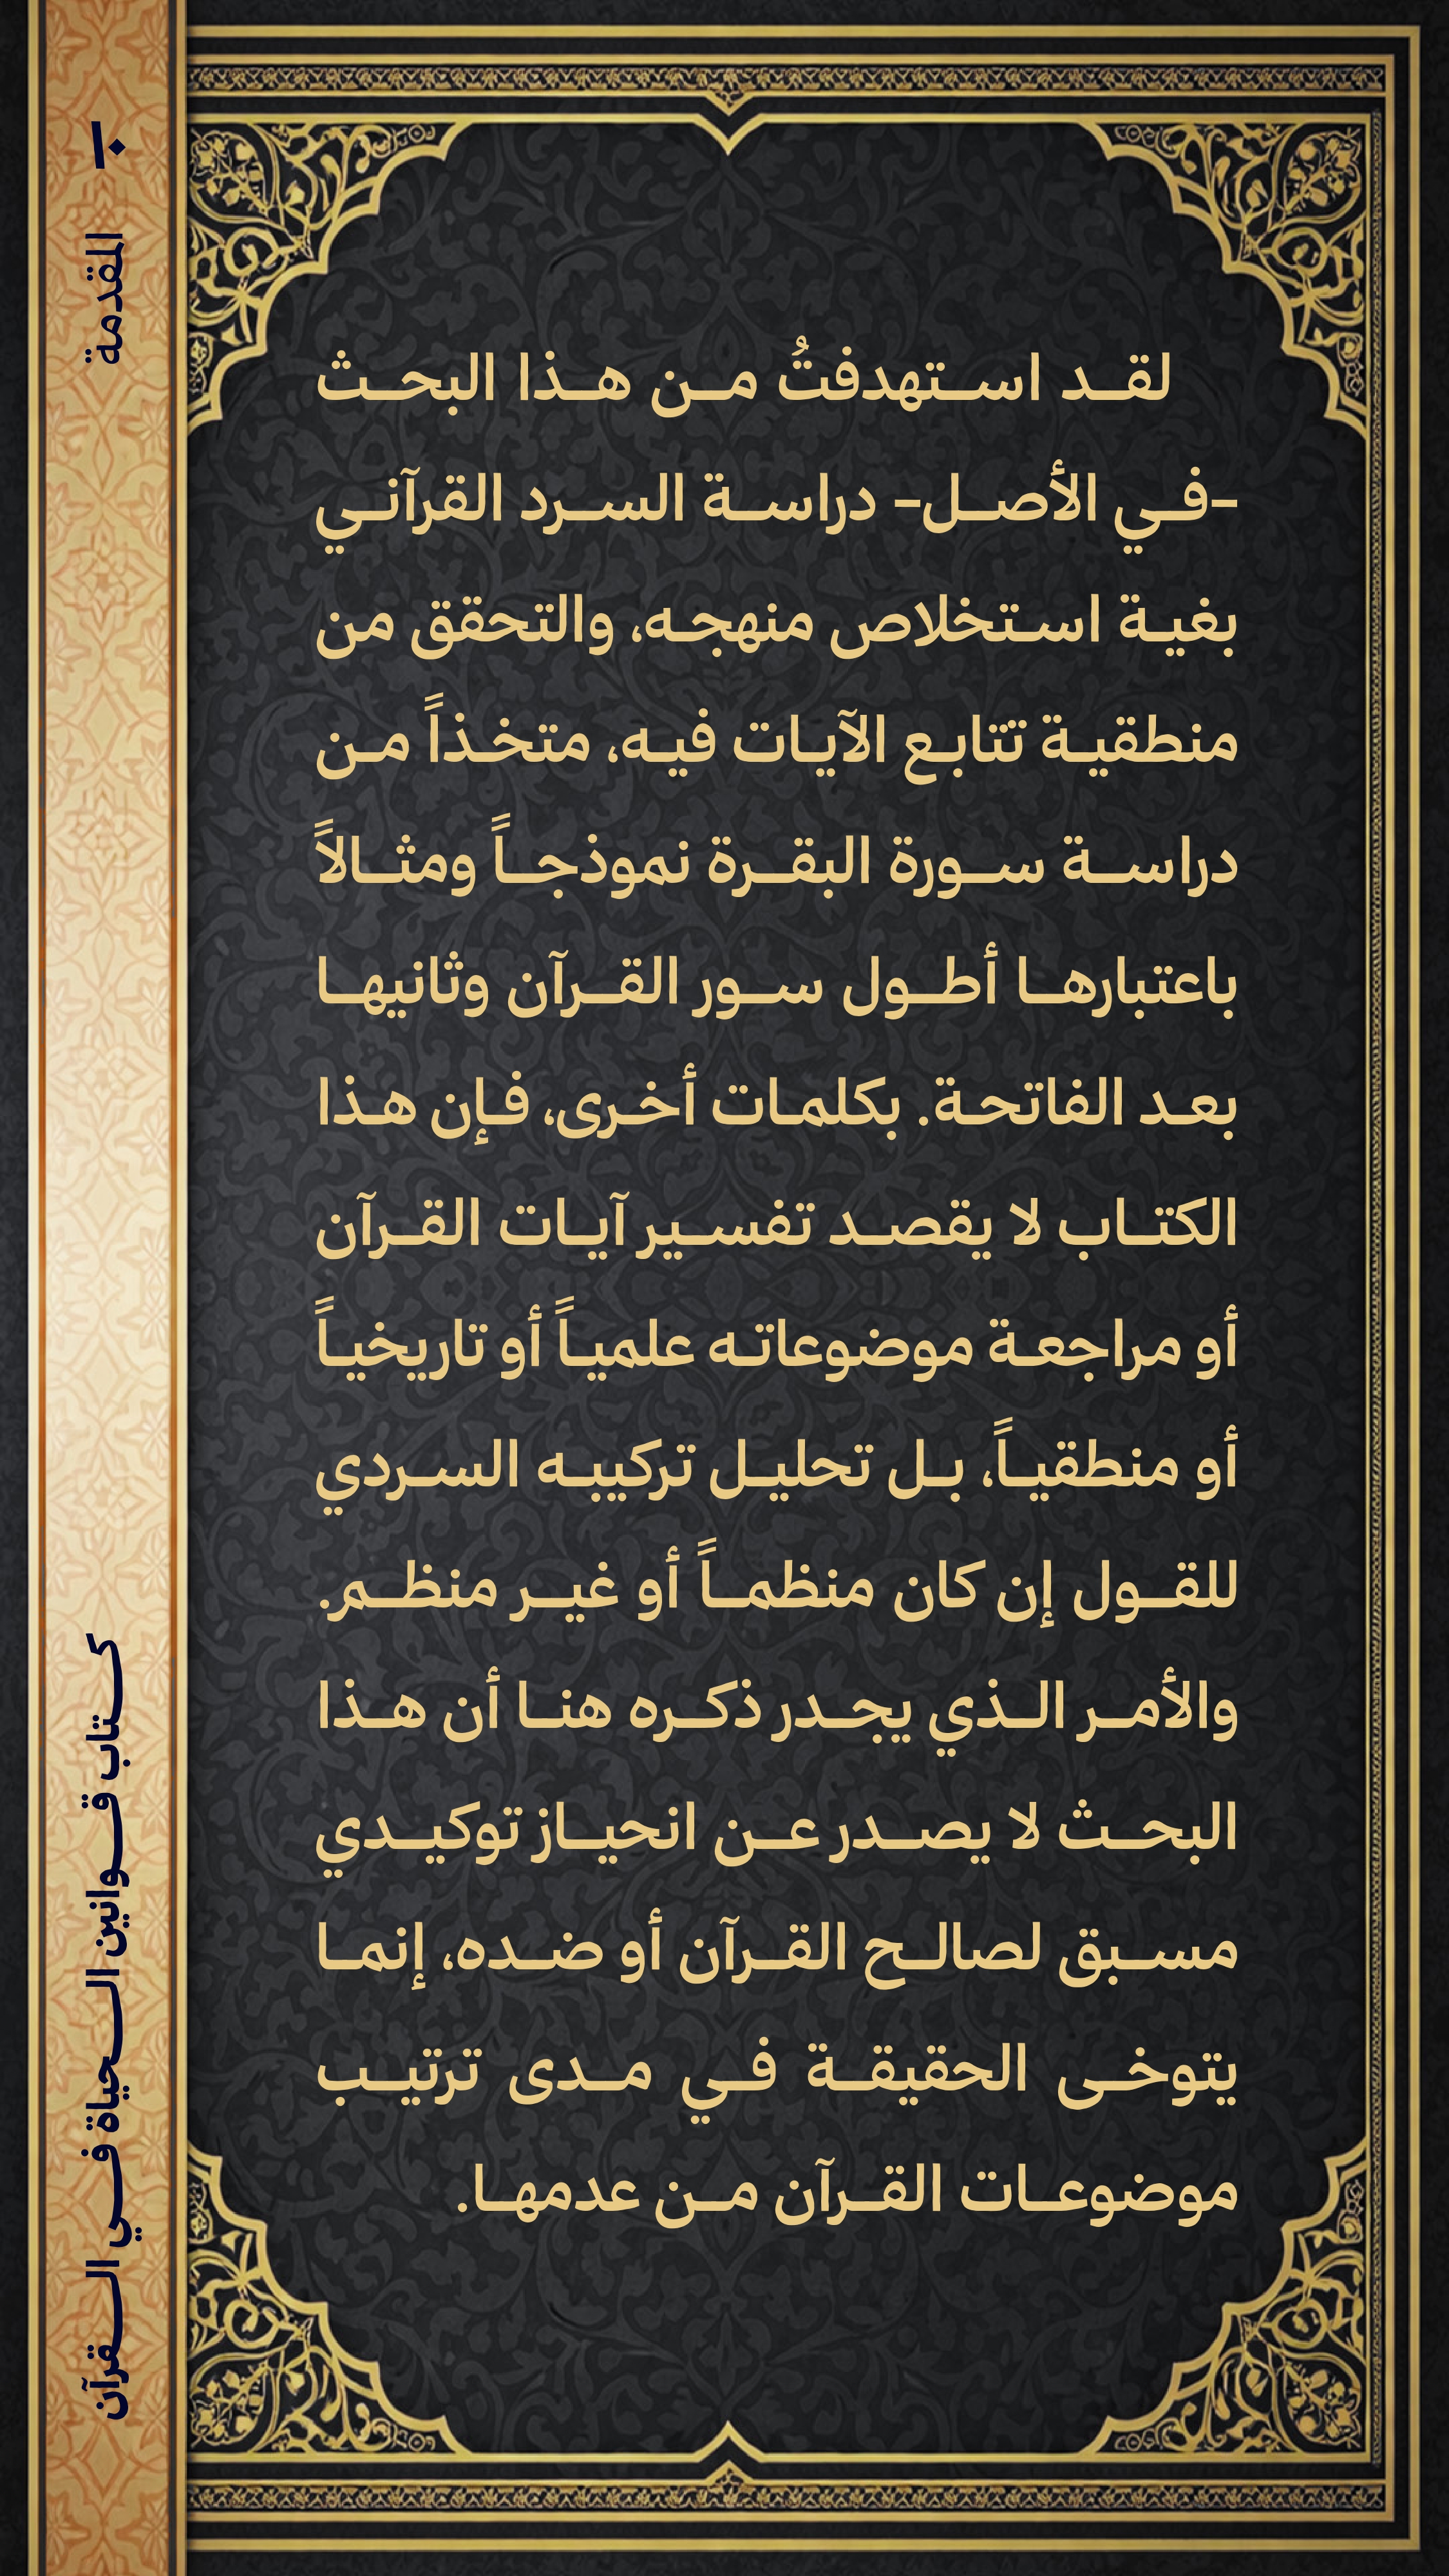 لقد استهدفتُ من هذا البحث
-في الأصل- دراسة السرد القرآني
بغية استخلاص منهجه، والتحقق من
منطقية تتابع الآيات فيه، متخذاً من
دراسة سورة البقرة نموذجاً ومثالاً
باعتبارها أطول سور القرآن وثانيها
بعد الفاتحة. بكلمات أخرى، فإن هذا
الكتاب لا يقصد تفسير آيات القرآن
أو مراجعة موضوعاته علمياً أو تاريخياً
أو منطقياً، بل تحليل تركيبه السردي
للقول إن كان منظماً أو غير منظم.
والأمر الذي يجدر ذكره هنا أن هذا
البحث لا يصدر عن انحياز توكيدي
مسبق لصالح القرآن أو ضده، إنما
يتوخى الحقيقة في مدى ترتيب
موضوعات القرآن من عدمها.
كتاب قوانين الحياة في القرآن
المقدمة
١٠